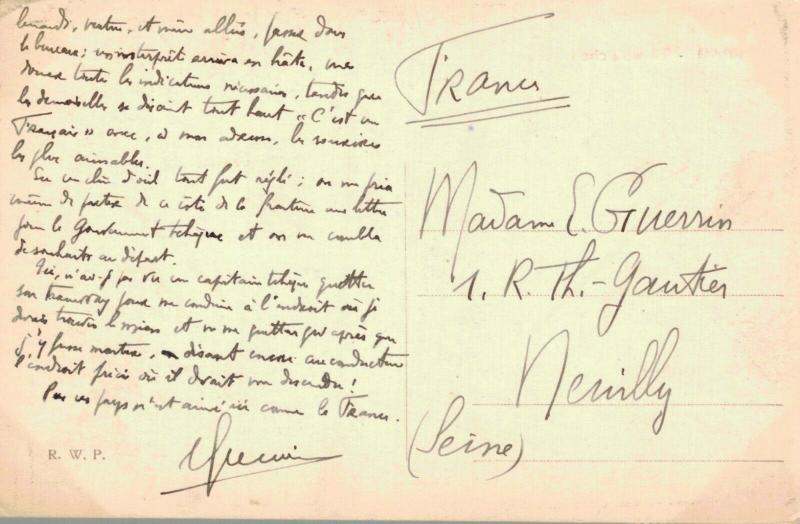 entrer, et même allés, passer dans
le bureau ; un interprète arriva en hâte, me
donna toute les indications nécessaires, tandis que
les demoiselles se disaient tout haut « C'est un
Français » avec, à mon adresse, les sourires
les plus aimables.
En un clin d'œil tout fut réglé ; on me pria
même de porter de ce côté de la frontière une lettre
pour le Gouvernement tchèque et on me combla
de souhaits au départ.
Ici, n'ai-je pas vu un capitaine tchèque quitter
son tramway pour me conduire à l'endroit où je
devais trouver le mien et ne me quitter qu'après que
j'y fusse monté, disant encore au conducteur
l'endroit précis où il devait me descendre !
Pas un pays n'est aimé ici comme la France.
Guerrin
R. W. P.
France
Madame E. Guerrin
1. R. Th.-Gautier
Neuilly
(Seine)